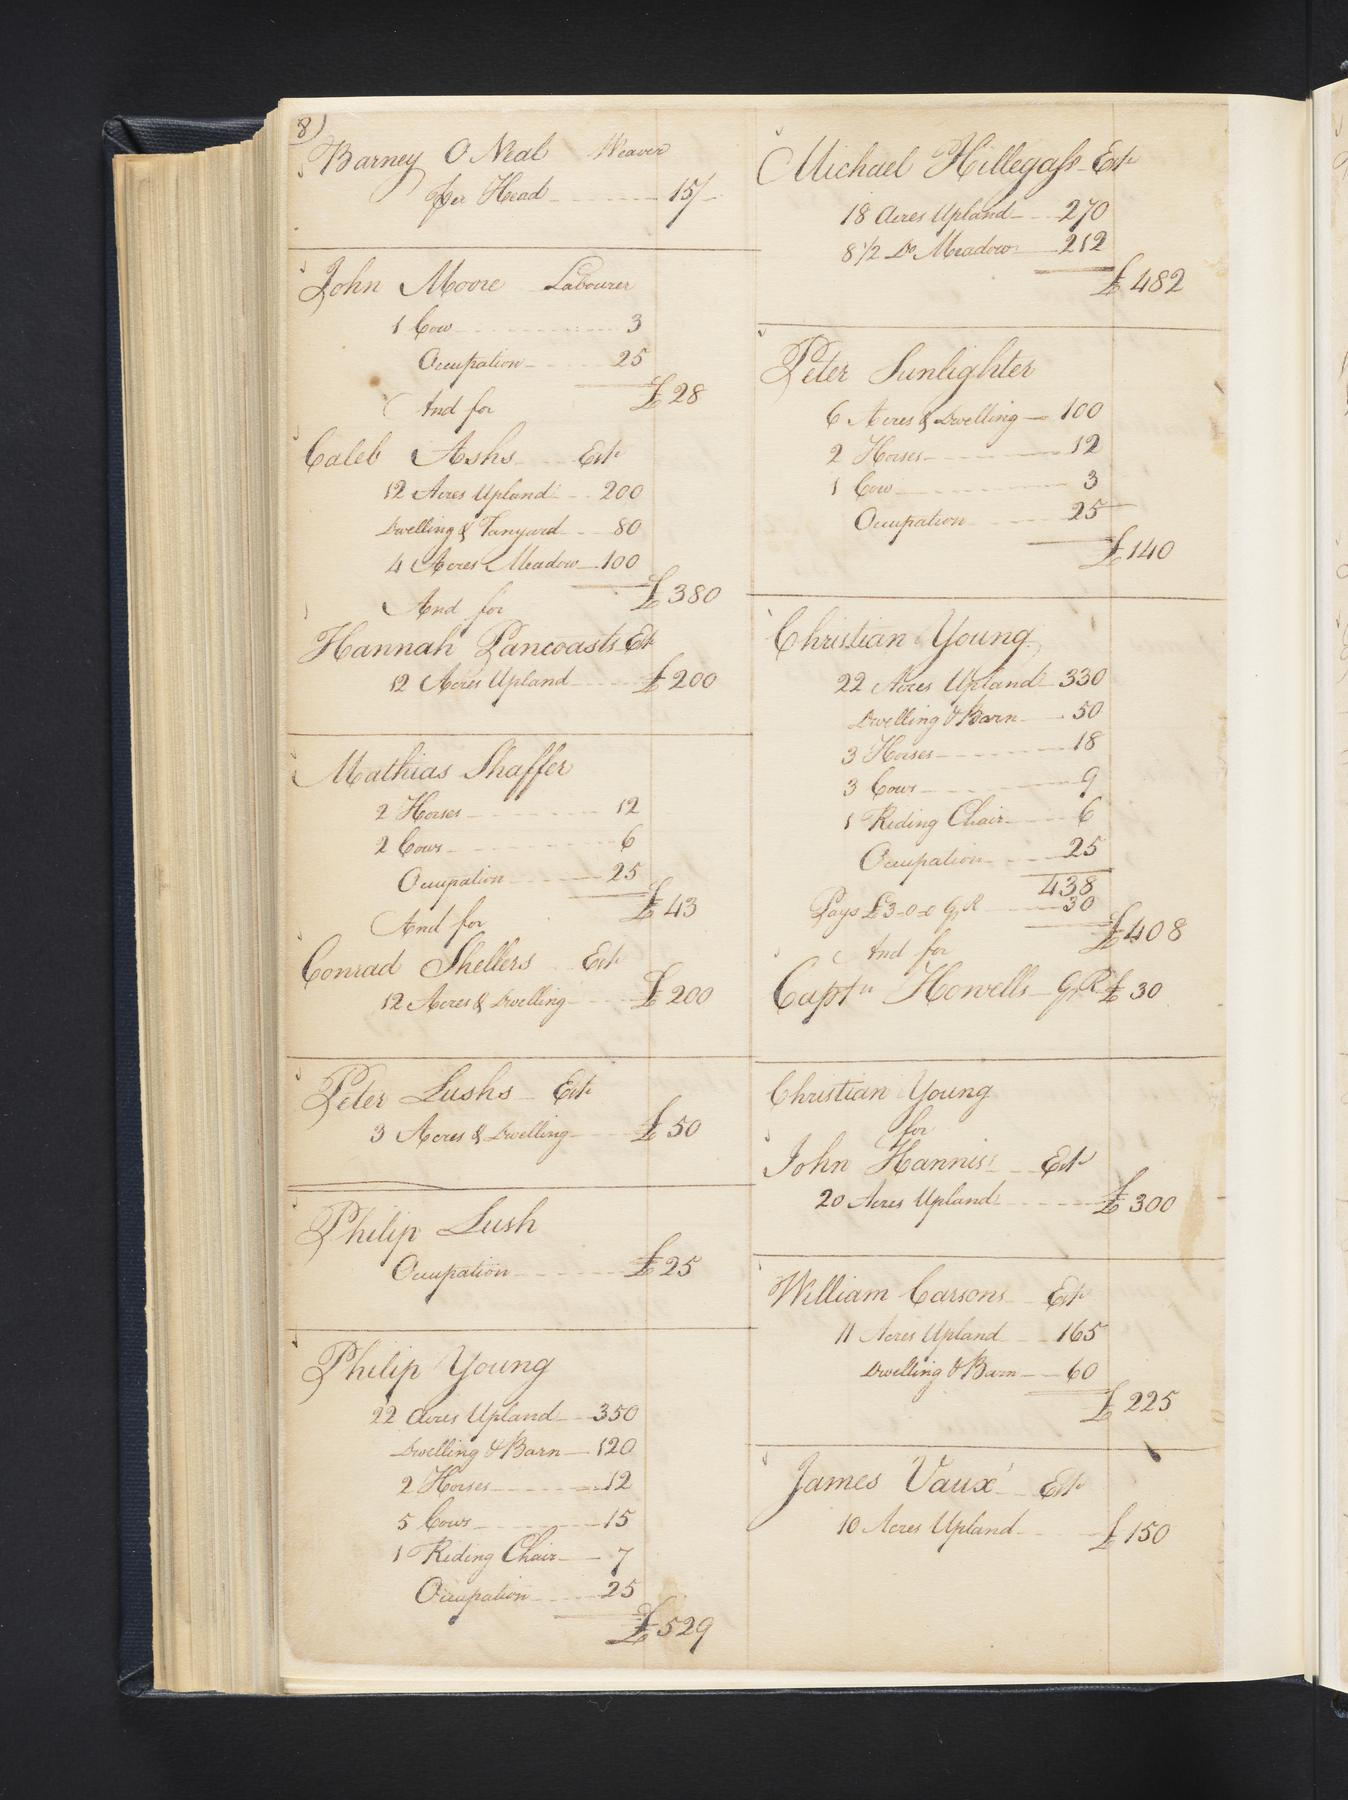 8)
Barney O Neal Weaver
per Head 15/-
John Moore Labourer
1 Cow 3
Occupation 25
£28
And for
Caleb Ashs Estr
12 Acres Upland 200
Dwelling & Tanyard 80
4 Acres Meadow 100
£380
And for
Hannah Pancoasts Est
12 Acres Upland £200
Mathias Shaffer
2 Horses 12
2 Cows 6
Occupation 25
£43
And for
Conrad Shellers Estr
12 Acres & Dwelling £200
Peter Lushs Estr
3 Acres & Dwelling £50
Philip Lush
Occupation £25
Philip Young
22 Acres Upland 350
Dwelling & Barn 120
2 Horses 12
5 Cows 15
1 Riding Chair 7
Occupation 25
£529
Michael Hillegass Estr
18 Acres Upland 270
8 1/2 Do Meadow 212
£482
Peter Sunlighter
6 Acres & Dwelling 100
2 Horses 12
1 Cow 3
Occupation 25
£140
Christian Young
22 Acres Upland 330
Dwelling & Barn 50
3 Horses 18
3 Cows 9
1 Riding Chair 6
Occupation 25
438
Pays £3-0-0 Gr R 30
£408
And for
Captn Howells Gr R £30
Christian Young
for
John Hanniss Estr
20 Acres Upland £300
William Carsons Estr
11 Acres Upland 165
Dwelling & Barn 60
£225
James Vaux' Estr
10 Acres Upland £150